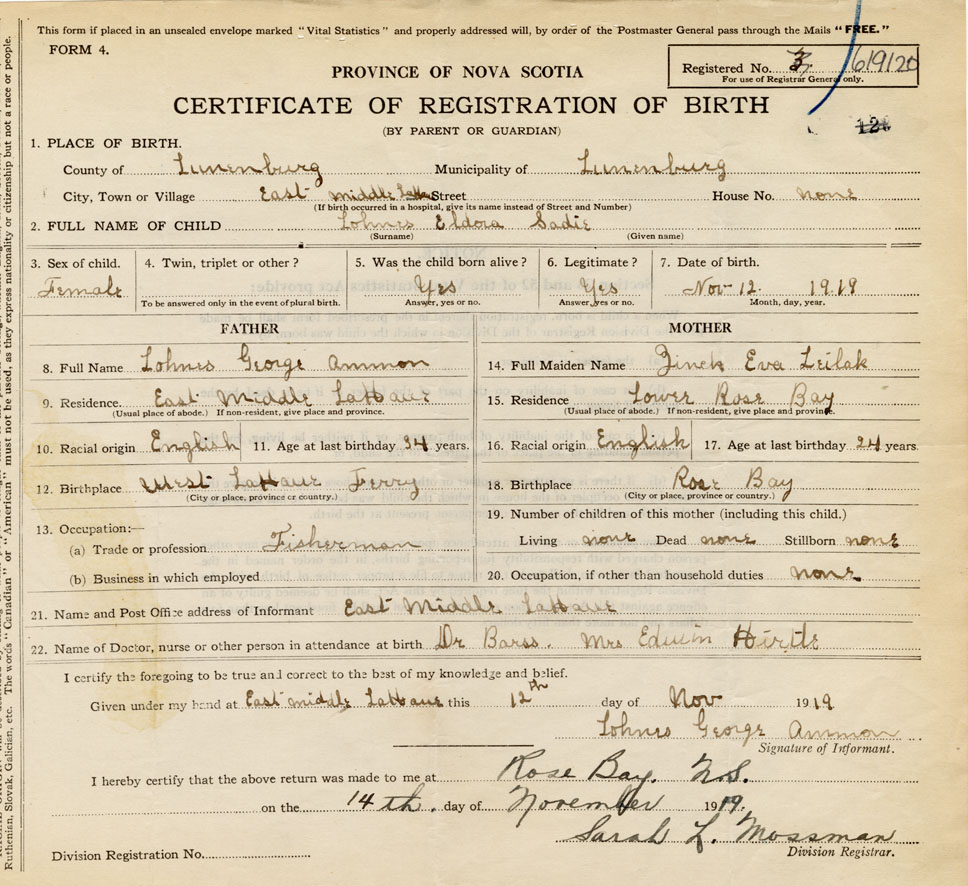 This form if placed in an unsealed envelope marked "Vital Statistics" and properly addressed will, by order of the Postmaster General pass through the Mails "FREE."
FORM 4.
PROVINCE OF NOVA SCOTIA
Registered No. 3 619120
For use of Registrar General only.
CERTIFICATE OF REGISTRATION OF BIRTH
(BY PARENT OR GUARDIAN)
1. PLACE OF BIRTH.
County of Lunenburg Municipality of Lunenburg
City, Town or Village East middle Street House No. none
(If birth occurred in a hospital, give its name instead of Street and Number)
2. FULL NAME OF CHILD Lohnes Eldora Sadie
(Surname) (Given name)
3. Sex of child. 4. Twin, triplet or other? 5. Was the child born alive? 6. Legitimate? 7. Date of birth.
Female Yes Yes Nov 12. 1919
To be answered only in the event of plural birth. Answer, yes or no. Answer, yes or no. Month, day, year.
FATHER MOTHER
8. Full Name Lohnes George Ammon 14. Full Maiden Name Zinck Eva Leilak
9. Residence East Middle LaHave 15. Residence Lower Rose Bay
(Usual place of abode.) If non-resident, give place and province. (Usual place of abode.) If non-resident, give place and province.
10. Racial origin English 11. Age at last birthday 34 years. 16. Racial origin English 17. Age at last birthday 24 years.
12. Birthplace West LaHave Ferry 18. Birthplace Rose Bay
(City or place, province or country.) (City or place, province or country.)
13. Occupation:— 19. Number of children of this mother (including this child.)
(a) Trade or profession Fisherman Living none Dead none Stillborn none
(b) Business in which employed 20. Occupation, if other than household duties none
21. Name and Post Office address of Informant East Middle LaHave
22. Name of Doctor, nurse or other person in attendance at birth Dr Barss. Mrs Edwin Hirtle
I certify the foregoing to be true and correct to the best of my knowledge and belief.
Given under my hand at East middle LaHave this 12th day of Nov 1919
Lohnes George Ammon
Signature of Informant.
I hereby certify that the above return was made to me at Rose Bay. N.S.
on the 14th. day of November 1919.
Sarah L. Mossman
Division Registrar.
Division Registration No.
Ruthenian, Slovak, Galician, etc. The words "Canadian" or "American" must not be used, as they express nationality or citizenship but not a race or people.